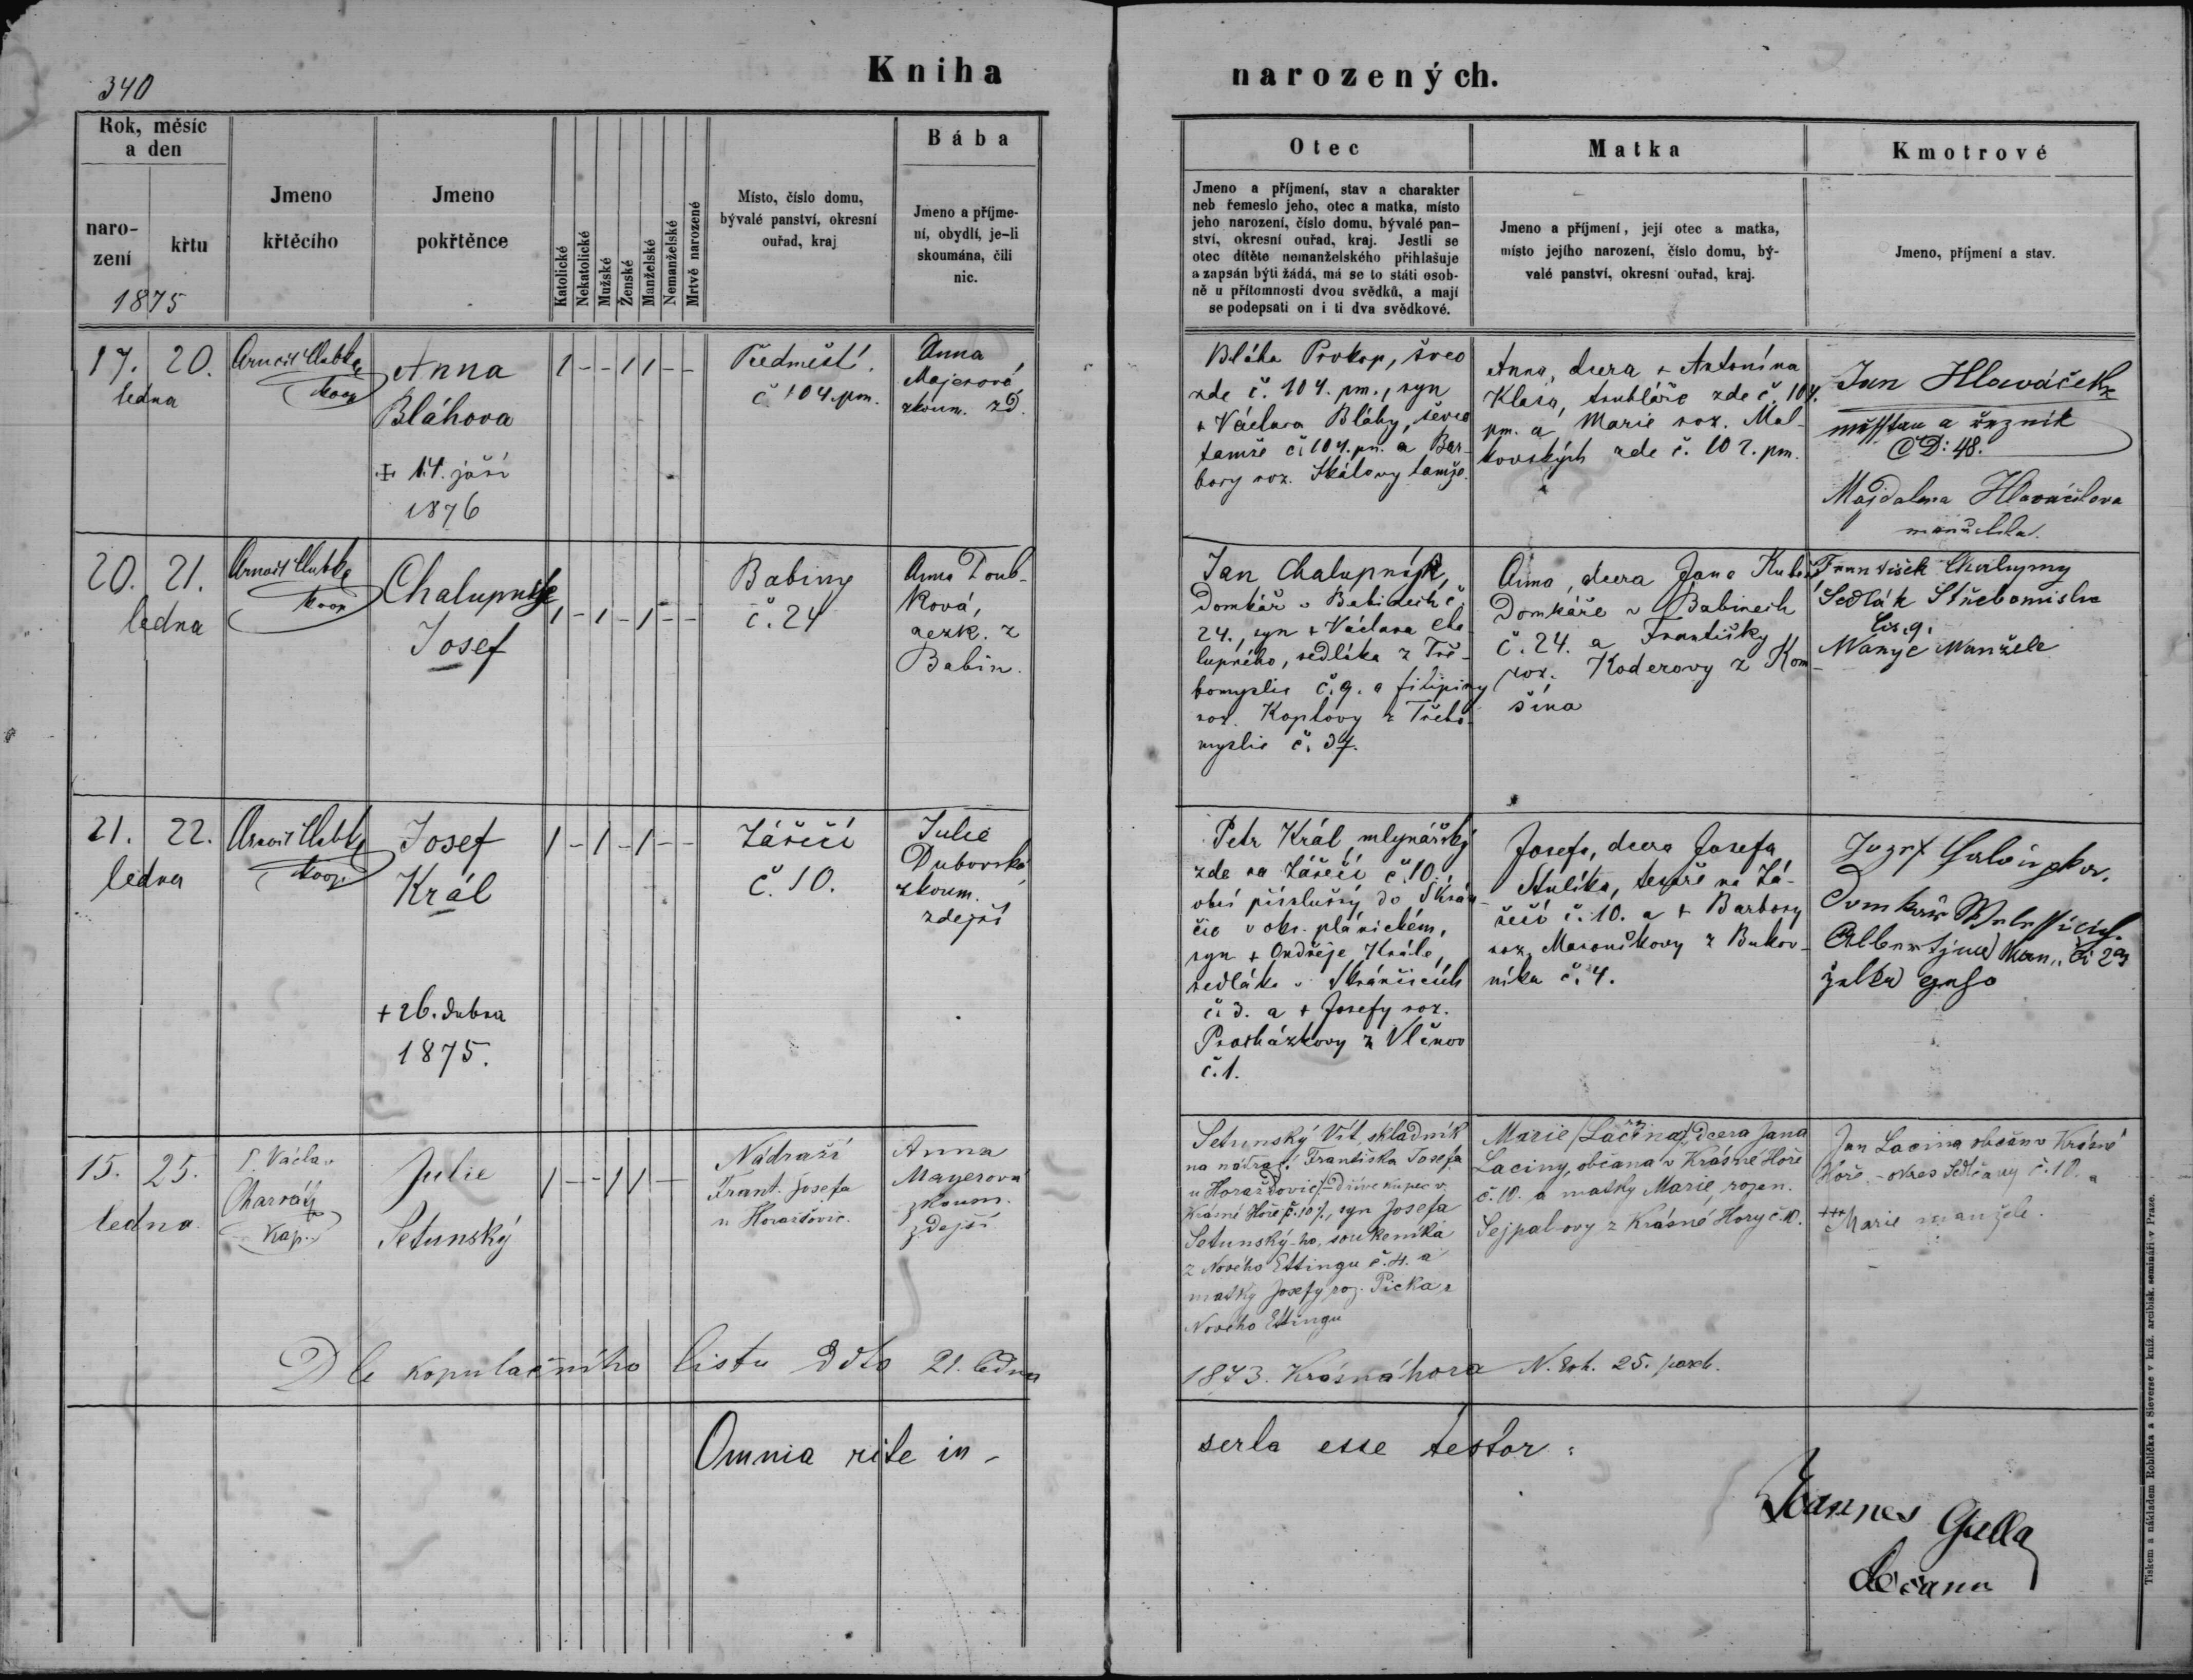 340
Kniha narozených.
Rok, měsíc
a den
naro-
zení
křtu
1875
Jmeno
křtěcího
Jmeno
pokřtěnce
Katolické
Nekatolické
Mužské
Ženské
Manželské
Nemanželské
Mrtvě narozené
Místo, číslo domu,
bývalé panství, okresní
ouřad, kraj
Bába
Jmeno a příjme-
ní, obydlí, je-li
skoumána, čili
nic.
Otec
Jmeno a příjmení, stav a charakter
neb řemeslo jeho, otec a matka, místo
jeho narození, číslo domu, bývalé pan-
ství, okresní ouřad, kraj. Jestli se
otec dítěte nemanželského přihlašuje
a zapsán býti žádá, má se to státi osob-
ně u přítomnosti dvou svědků, a mají
se podepsati on i ti dva svědkové.
Matka
Jmeno a příjmení, její otec a matka,
místo jejího narození, číslo domu, bý-
valé panství, okresní ouřad, kraj.
Kmotrové
Jmeno, příjmení a stav.
17. 20.
ledna
Arnošt
Anna
Bláhova
+ 14. září
1876
1 - - 1 1 - -
Předměstí
č 104. pm.
Anna
Majerová,
zkoum. zd.
Bláha Prokop, švec
zde č. 104. pm., syn
+ Václava Bláhy, ševce
tamže č. 104. pm. a Bar-
bory roz. Skálovy tamže.
Anna, dcera + Antonína
Klasa, truhláře zde č. 104.
pm. a Marie roz. Mal-
kovských zde č. 102. pm.
Jan Hlaváček
měsstan a řezník
CD: 48.
Majdalena Hlaváčkova
manželka.
20. 21.
ledna
Arnošt
Chalupný
Josef
1 - 1 - 1 - -
Babiny
č. 24
Anna Toub-
ková,
nezk. z
Babin.
Jan Chalupný,
Domkář v Babinech č.
24., syn + Václava Cha-
lupného, sedláka z Tře-
bomyslic č. 9. a Filipiny
roz. Koptovy z Třebo-
myslic č. 37.
Anna, dcera Jana
Domkáře v Babinech
č. 24. a Františky
roz. Koderovy z Kom-
šína
František Chalupny
Sedlák Střebomislic
čís. 9.
Manželé
21. 22.
ledna
Arnošt
Josef
Král
+ 26. dubna
1875.
1 - 1 - 1 - -
Zářečí
č. 10.
Julie
Dubovská
zkoum.
zdejší
Petr Král, mlynářský
zde na Zářečí č. 10.,
obcí příslušný do Skrán-
čic v okr. plánickém,
syn + Ondřeje Krále,
sedláka v Skránčicích
č. 3. a + Josefy roz.
Procházkovy z Vlčnov
č. 1.
Josefa, dcera Josefa
Stulíka, tesaře na Zá-
řečí č. 10. a + Barbory
roz. Marouškovy z Bukov-
níka č. 4.
Albertina Man-
želka
15. 25.
ledna
P. Václav
Charvát
Kap.
Julie
Setunský
1 - - 1 1 -
Nádraží
Frant. Josefa
u Horažďovic.
Anna
Mayerová
zkoum.
zdejší
Setunský Vít, skladník
na nádraží Františka Josefa
u Horažďovic - dříve kupec v
Krásné Hoře č. 107., syn Josefa
Setunský-ho, soukeníka
z Nového Ettingu č. 4. a
matky Josefy roz. Picka z
Nového Ettingu
Marie Lacina, dcera Jana
Laciny, občana v Krásné Hoře
č. 10. a matky Marie, rozen.
Sejpalovy z Krásné Hory č. 10.
Jan Lacina občan v Krásné
Hoře - okres Sedlčany č. 10. a
+++ Marie manžele.
Dle kopulačního listu ddto 21. ledna 1873. Krásnáhora N. Exh. 25. paroch.
Omnia rite in-
serta esse testor:
Joannes
Decanus
Tiskem a nákladem Rohlíčka a Sieverse v kníž. arcibisk. semináři v Praze.